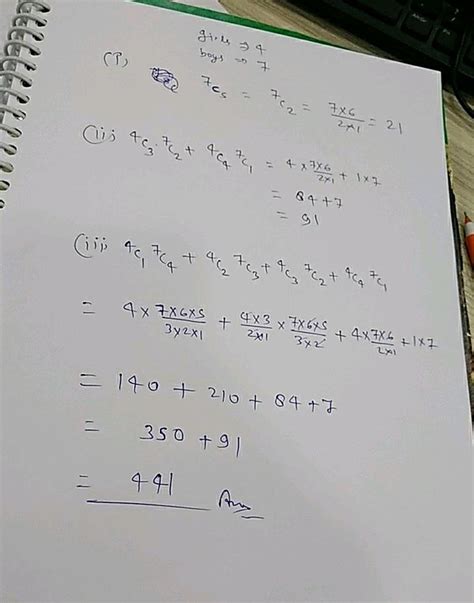 girls ⇒ 4
boys ⇒ 7
(i) 7C5 = 7C2 = 7×6/2×1 = 21
(ii) 4C3·7C2 + 4C4 7C1 = 4×7×6/2×1 + 1×7
= 84+7
= 91
(iii) 4C1 7C4 + 4C2 7C3 + 4C3 7C2 + 4C4 7C1
= 4×7×6×5/3×2×1 + 4×3/2×1 × 7×6×5/3×2 + 4×7×6/2×1 + 1×7
= 140 + 210 + 84+7
= 350 + 91
= 441 Ans